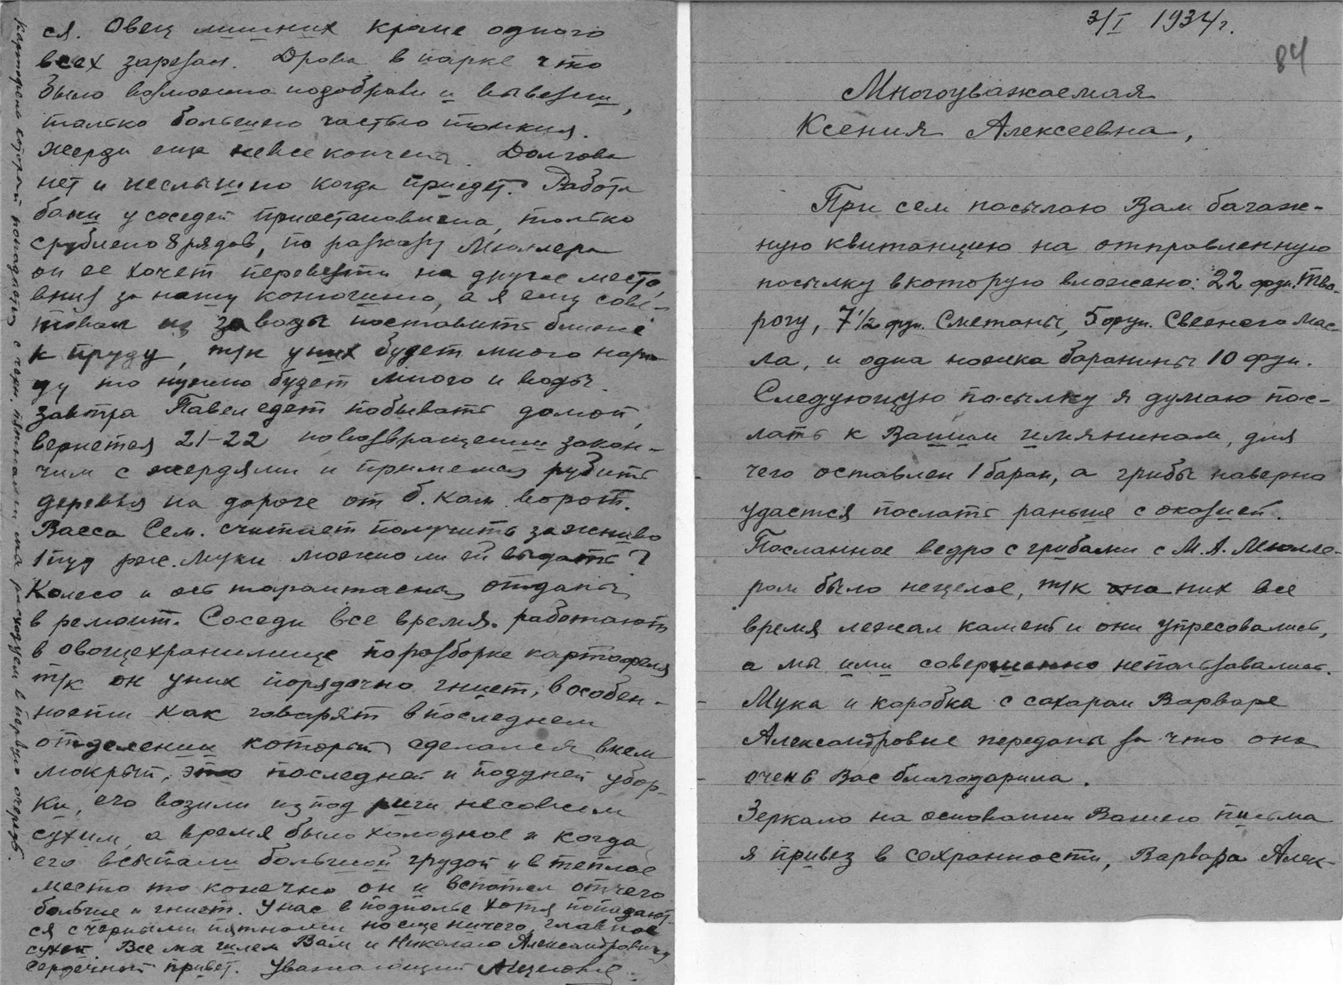 ся. Овец лишних кроме одного
всех зарезал. Дрова в парке что
было возможно подобрали и вывезли,
только большею частью тонкия.
Жерди еще невсе кончены. Долгова
нет и неслышно когда приедет. Работа
бани у соседей приостановлена, только
срублено 8 рядов, по разказу Мюллера
он ее хочет перевезти на другое место,
вниз за нашу конюшню, а я ему сове-
товал из за воды поставить ближе
к пруду, т/к у них будет много наро-
ду то нужно будет много и воды.
Завтра Павел едет побывать домой,
вернется 21-22 повозвращении закон-
чим с жердями и примемся рубить
деревья на дороге от б. кам. ворот.
Васса Сем. считает получить за жниво
1 пуд рж. муки можно ли ей выдать?
Колесо и ось тарантасныя отданы
в ремонт. Соседи все время работают
в овощехранилище поразборке картофеля
т/к он у них порядочно гниет, в особен-
ности как говорят в последнем
отделении который сделался в нем
мокрый, это последней и поздней убор-
ки, его возили изпод риги несовсем
сухим, а время было холодное и когда
его всыпали большой грудой и в теплое
место то конечно он и вспотел отчего
больше и гниет. У нас в подполье хотя попадают-
ся с черными пятнами но еще ничего, главное
сухой. Все мы шлем Вам и Николаю Александровичу
сердечный привет. Уважающий
Картофель который попадается с черн. пятнами мы расходуем в первую очередь.
3/I 1934 г.
84
Многоуважаемая
Ксения Алексеевна,
При сем посылаю Вам багаж-
ную квитанцию на отправленную
посылку в которую вложено: 22 фун. тво-
рогу, 7 1/2 фун. Сметаны, 5 фун. Свежего мас-
ла, и одна ножка баранины 10 фун.
Следующую посылку я думаю пос-
лать к Вашим имянинам, для
чего оставлен 1 баран, а грибы наверно
удастся послать раньше с оказией.
Посланное ведро с грибами с М. А. Мюлле-
ром было нецелое, т/к на них все
время лежал камень и они упресовались,
а мы ими совершенно непользовались.
Мука и коробка с сахаром Варваре
Александровне переданы за что она
очень Вас благодарила.
Зеркало на основании Вашего письма
я привез в сохранности, Варвара Алек-